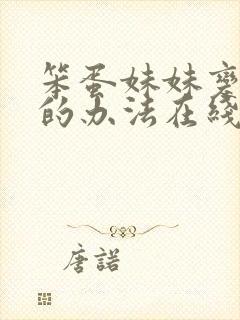 笨蛋妹妹
的办法在綫
唐諾